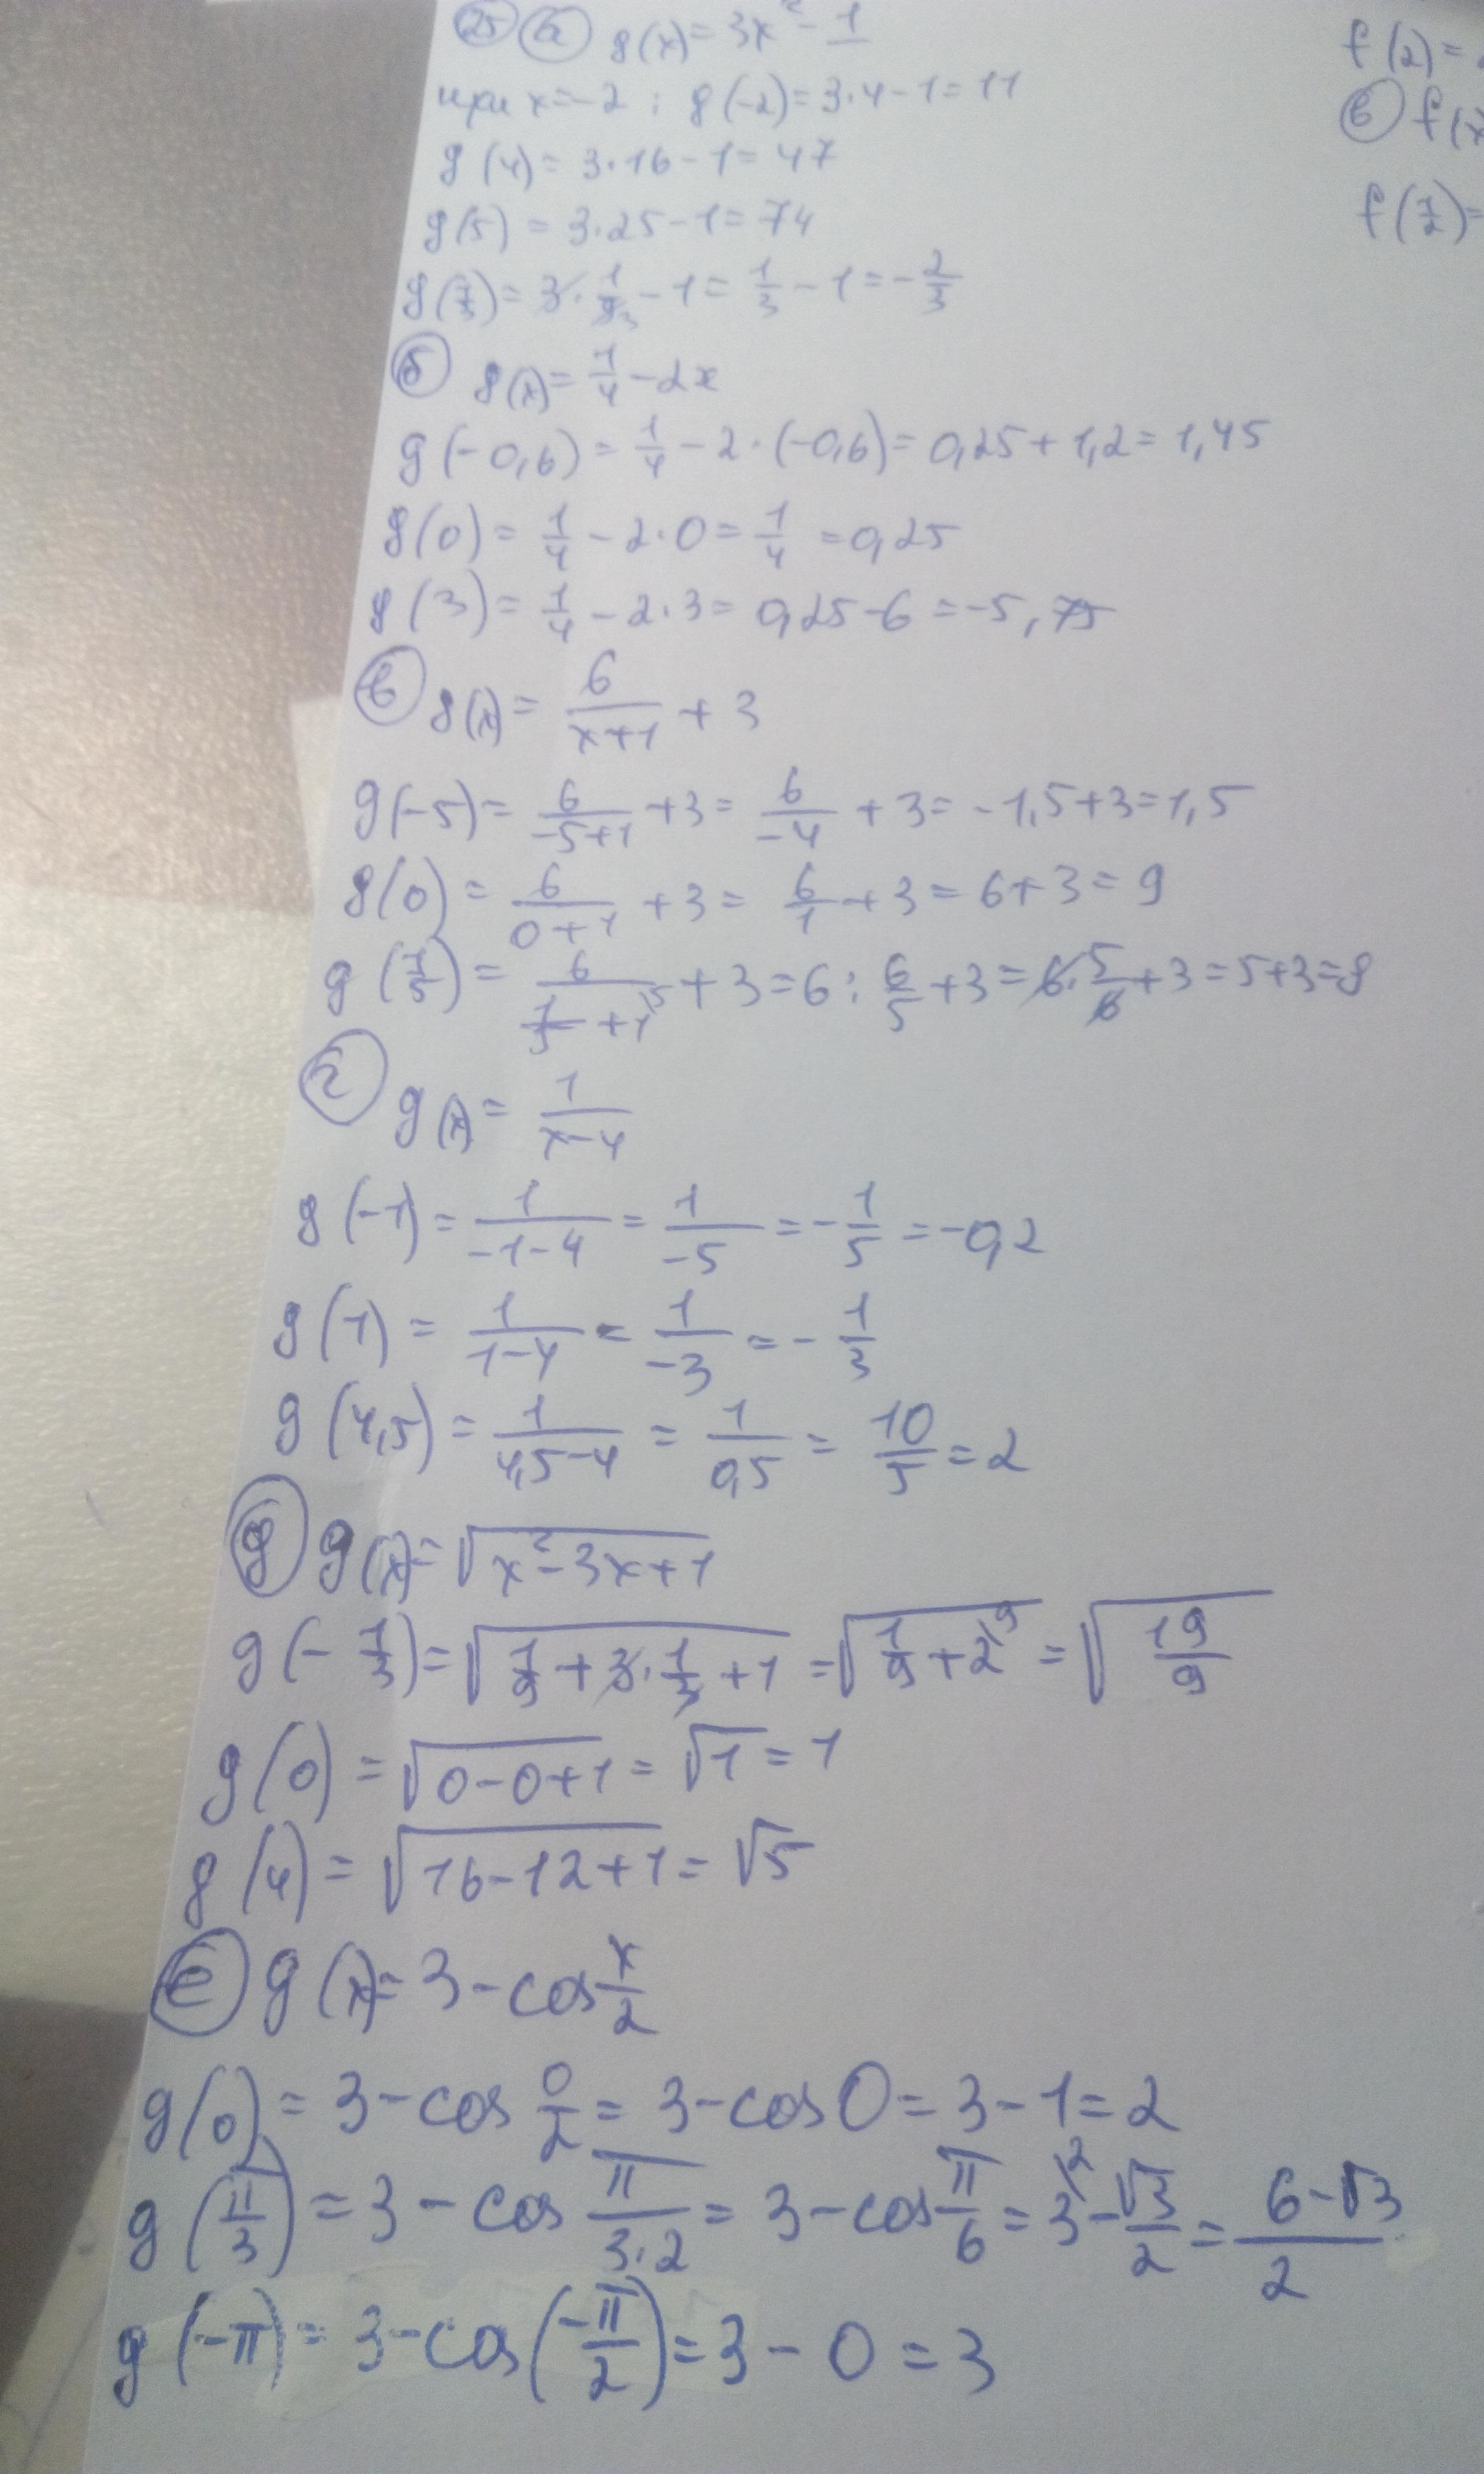 25 а g(x) = 3x² - 1
при x=-2 : g(-2) = 3·4-1 = 11
g(4) = 3·16-1 = 47
g(5) = 3·25-1 = 74
g(1/3) = 3·1/9 - 1 = 1/3 - 1 = -2/3
б g(x) = 1/4 - 2x
g(-0,6) = 1/4 - 2·(-0,6) = 0,25+1,2 = 1,45
g(0) = 1/4 - 2·0 = 1/4 = 0,25
g(3) = 1/4 - 2·3 = 0,25-6 = -5,75
в g(x) = 6/(x+1) + 3
g(-5) = 6/(-5+1) + 3 = 6/-4 + 3 = -1,5+3 = 1,5
g(0) = 6/(0+1) + 3 = 6/1 + 3 = 6+3 = 9
g(1/5) = 6/(1/5 + 1\5) + 3 = 6 : 6/5 + 3 = 6·5/6 + 3 = 5+3 = 8
г g(x) = 1/(x-4)
g(-1) = 1/(-1-4) = 1/-5 = -1/5 = -0,2
g(1) = 1/(1-4) = 1/-3 = -1/3
g(4,5) = 1/(4,5-4) = 1/0,5 = 10/5 = 2
g g(x) = √(x²-3x+1)
g(-1/3) = √(1/9 + 3·1/3 + 1) = √(1/9 + 2\9) = √(19/9)
g(0) = √(0-0+1) = √1 = 1
g(4) = √(16-12+1) = √5
е g(x) = 3 - cos x/2
g(0) = 3 - cos 0/2 = 3 - cos 0 = 3-1 = 2
g(π/3) = 3 - cos π/(3·2) = 3 - cos π/6 = 3\2 - √3/2 = (6-√3)/2
g(-π) = 3 - cos(-π/2) = 3 - 0 = 3
f(2) =
в f(
f(1/2) =